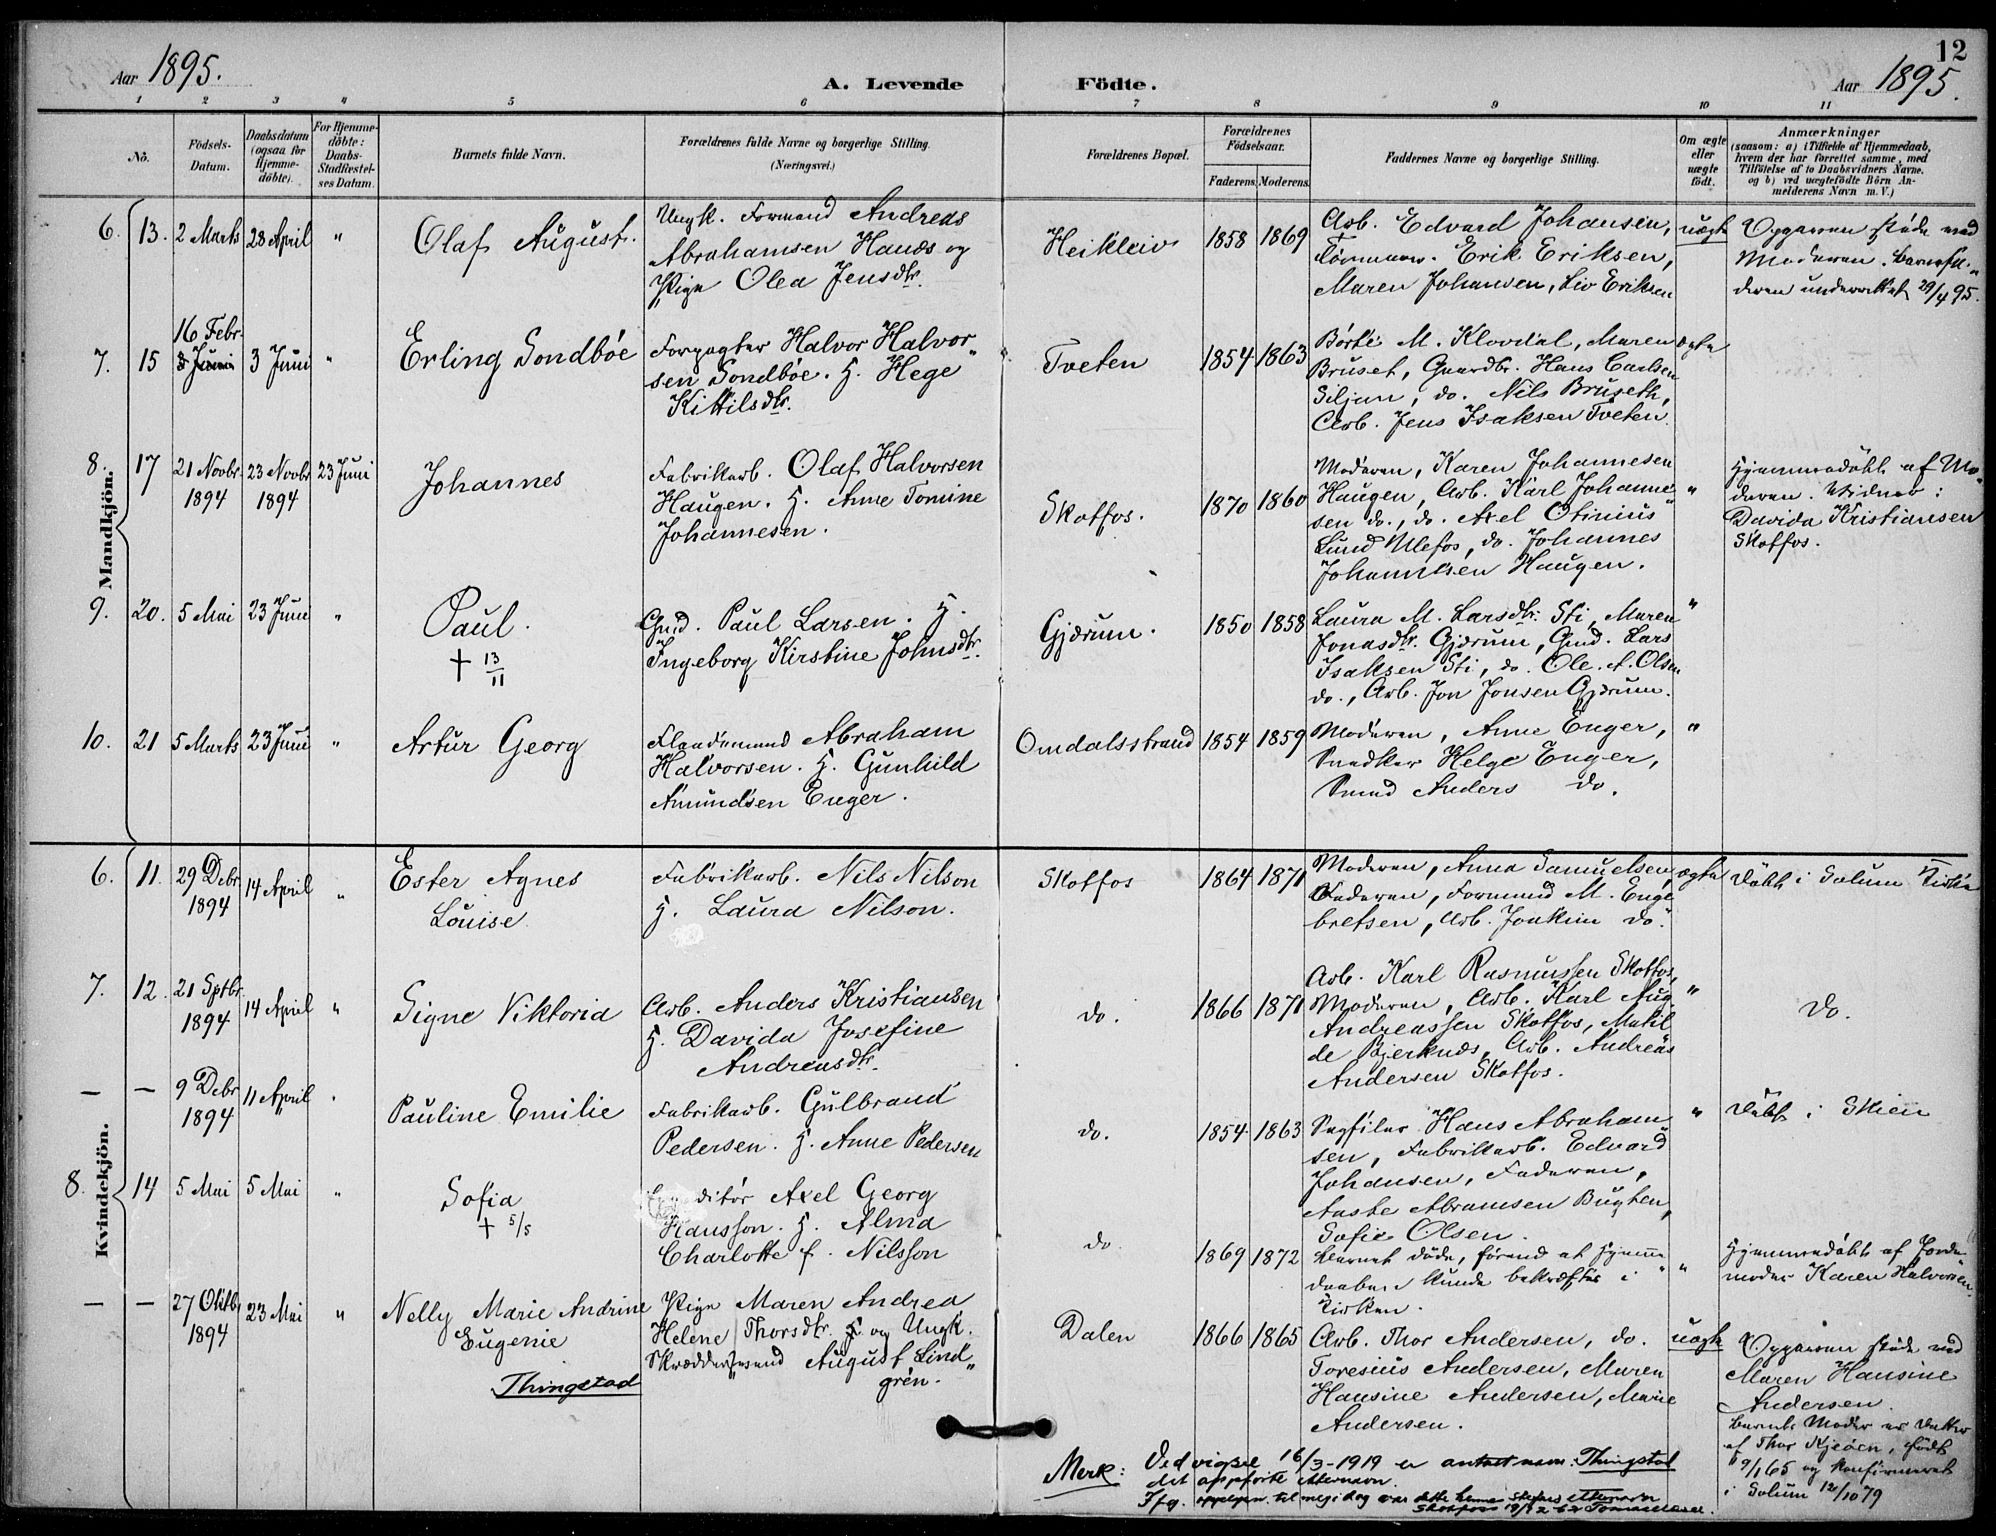 12
Aar 1895.
A. Levende Födte.
Aar 1895.
1 2 3 4 5 6 7 8 9 10 11
No.
Födsels-
Datum.
Daabsdatum
(ogsaa for
Hjemme-
döbte).
For Hjemme-
döbte:
Daabs-
Stadfæstel-
ses Datum.
Barnets fulde Navn.
Forældrenes fulde Navne og borgerlige Stilling.
(Næringsvei.)
Forældrenes Bopæl.
Forældrenes
Födselsaar.
Faderens. Moderens.
Faddernes Navne og borgerlige Stilling.
Om ægte
eller
uægte
födt.
Anmærkninger
(saasom: a) i Tilfælde af Hjemmedaab,
hvem der har forrettet samme, med
Tilföielse af to Daabsvidners Navne,
og b) ved uægtefödte Börn An-
melderens Navn m. V.)
Mandkjön.
6. 13. 2 Marts 28 April "
Olaf August.
Ungk. Formand Andreas
Abrahamsen Hanæs og
Pige Olea Jensdtr.
Heikleiv 1858 1869
Arb. Edvard Johansen,
Tømmerm. Erik Eriksen,
Maren Johansen, Liv Eriksen
uægte
Opgaven skede ved
Moderen. Barnefa-
deren underrettet 29/4 95.
7. 15 16 Febr. 3 Juni "
Erling Sondbøe
Forpagter Halvor Halvor-
sen Sondboe. H. Hege
Kittilsdtr.
Tveten 1854 1863
Børte M. Klovdal, Maren
Bruset, Gaardbr. Hans Carlsen
Siljan, do. Nils Bruseth,
Arb. Jens Isaksen Tveten.
ægte
8. 17 21 Novbr. 1894 23 Novbr 1894 23 Juni
Johannes
Fabrikarb. Olaf Halvorsen
Haugen. H. Anne Tomine
Johannesen.
Skotfos. 1870 1860
Moderen, Karen Johannesen
Haugen, Arb. Karl Johanne-
sen do., do. Axel Otinius
Lund Ulefos, do. Johannes
Johannesen Haugen.
"
Hjemmedøbt af Mo-
deren. Vidner:
Davida Kristiansen
Skotfos.
9. 20. 5 Mai 23 Juni "
Paul.
† 13/11
Gmd. Paul Larsen. H.
Ingeborg Kirstine Johnsdtr.
Gjærum. 1850 1858
Laura M. Larsdtr. Sti, Maren
Jonasdtr. Gjærum, Gmd. Lars
Isaksen Sti, do. Ole A. Olsen
do., Arb. Jon Jonsen Gjærum.
"
10. 21 5 Marts 23 Juni "
Artur Georg
Flaademand Abraham
Halvorsen. H. Gunhild
Amundsen Enger.
Omdalsstrand 1854 1859
Moderen, Anne Enger,
Snedker Helge Enger,
Smed Anders do.
"
Kvindekjön.
6. 11. 29 Debr. 1894 14 April "
Ester Agnes
Louise
Fabrikarb. Nils Nilson
H. Laura Nilson.
Skotfos 1864 1871
Moderen, Anna Samuelsen,
Faderen, Formand M. Enge-
bretsen, Arb. Joakim do.
ægte
Døbt i Solum Kirke
7. 12. 21 Sptbr. 1894 14 April "
Signe Viktoria
Arb. Anders Kristiansen
H. Davida Josefine
Andreasdtr.
do. 1866 1871
Arb. Karl Rasmussen Skotfos,
Moderen, Arb. Karl Aug.
Andreassen Skotfos, Matil-
de Bjerknæs, Arb. Andreas
Andersen Skotfos.
"
Do.
— — 9 Debr 1894 11 April "
Pauline Emilie
Fabrikarb. Gulbrand
Pedersen. H. Anne Pedersen
do. 1854 1863
Sagfiler Hans Abraham-
sen, Fabrikarb. Edvard
Johansen, Faderen,
Aaste Abramsen Bugten,
Sofie Olsen.
"
Døbt i Skien
8. 14 5 Mai 5 Mai "
Sofia
† 5/5
Axel Georg
Hansson. H. Alma
Charlotte f. Nilsson
do 1869 1872
Barnet døde, førend at Hjemme-
daaben kunde bekræftes i
Kirken.
"
Hjemmedøbt af Jorde-
moder Karen Halvorsen.
— — 27 Oktb 1894 23 Mai "
Nelly Marie Andrine
Eugenie
Thingstad
Pige Maren Andrea
Helene Thorsdtr. og Ungk.
Skræddersvend August Lind-
grén.
Dalen 1866 1865
Arb. Thor Andersen, do.
Toresius Andersen, Maren
Hansine Andersen, Marie
Andersen.
uægte
Opgaven skede ved
Maren Hansine
Andersen.
Barnets Moder er Datter
af Thor Kjeøen, født
9/1 65 og konfirmeret
i Solum 12/10 79
Merk: Ved vigsel 16/3-1919 er Thingstad
det oppførte etternavn.